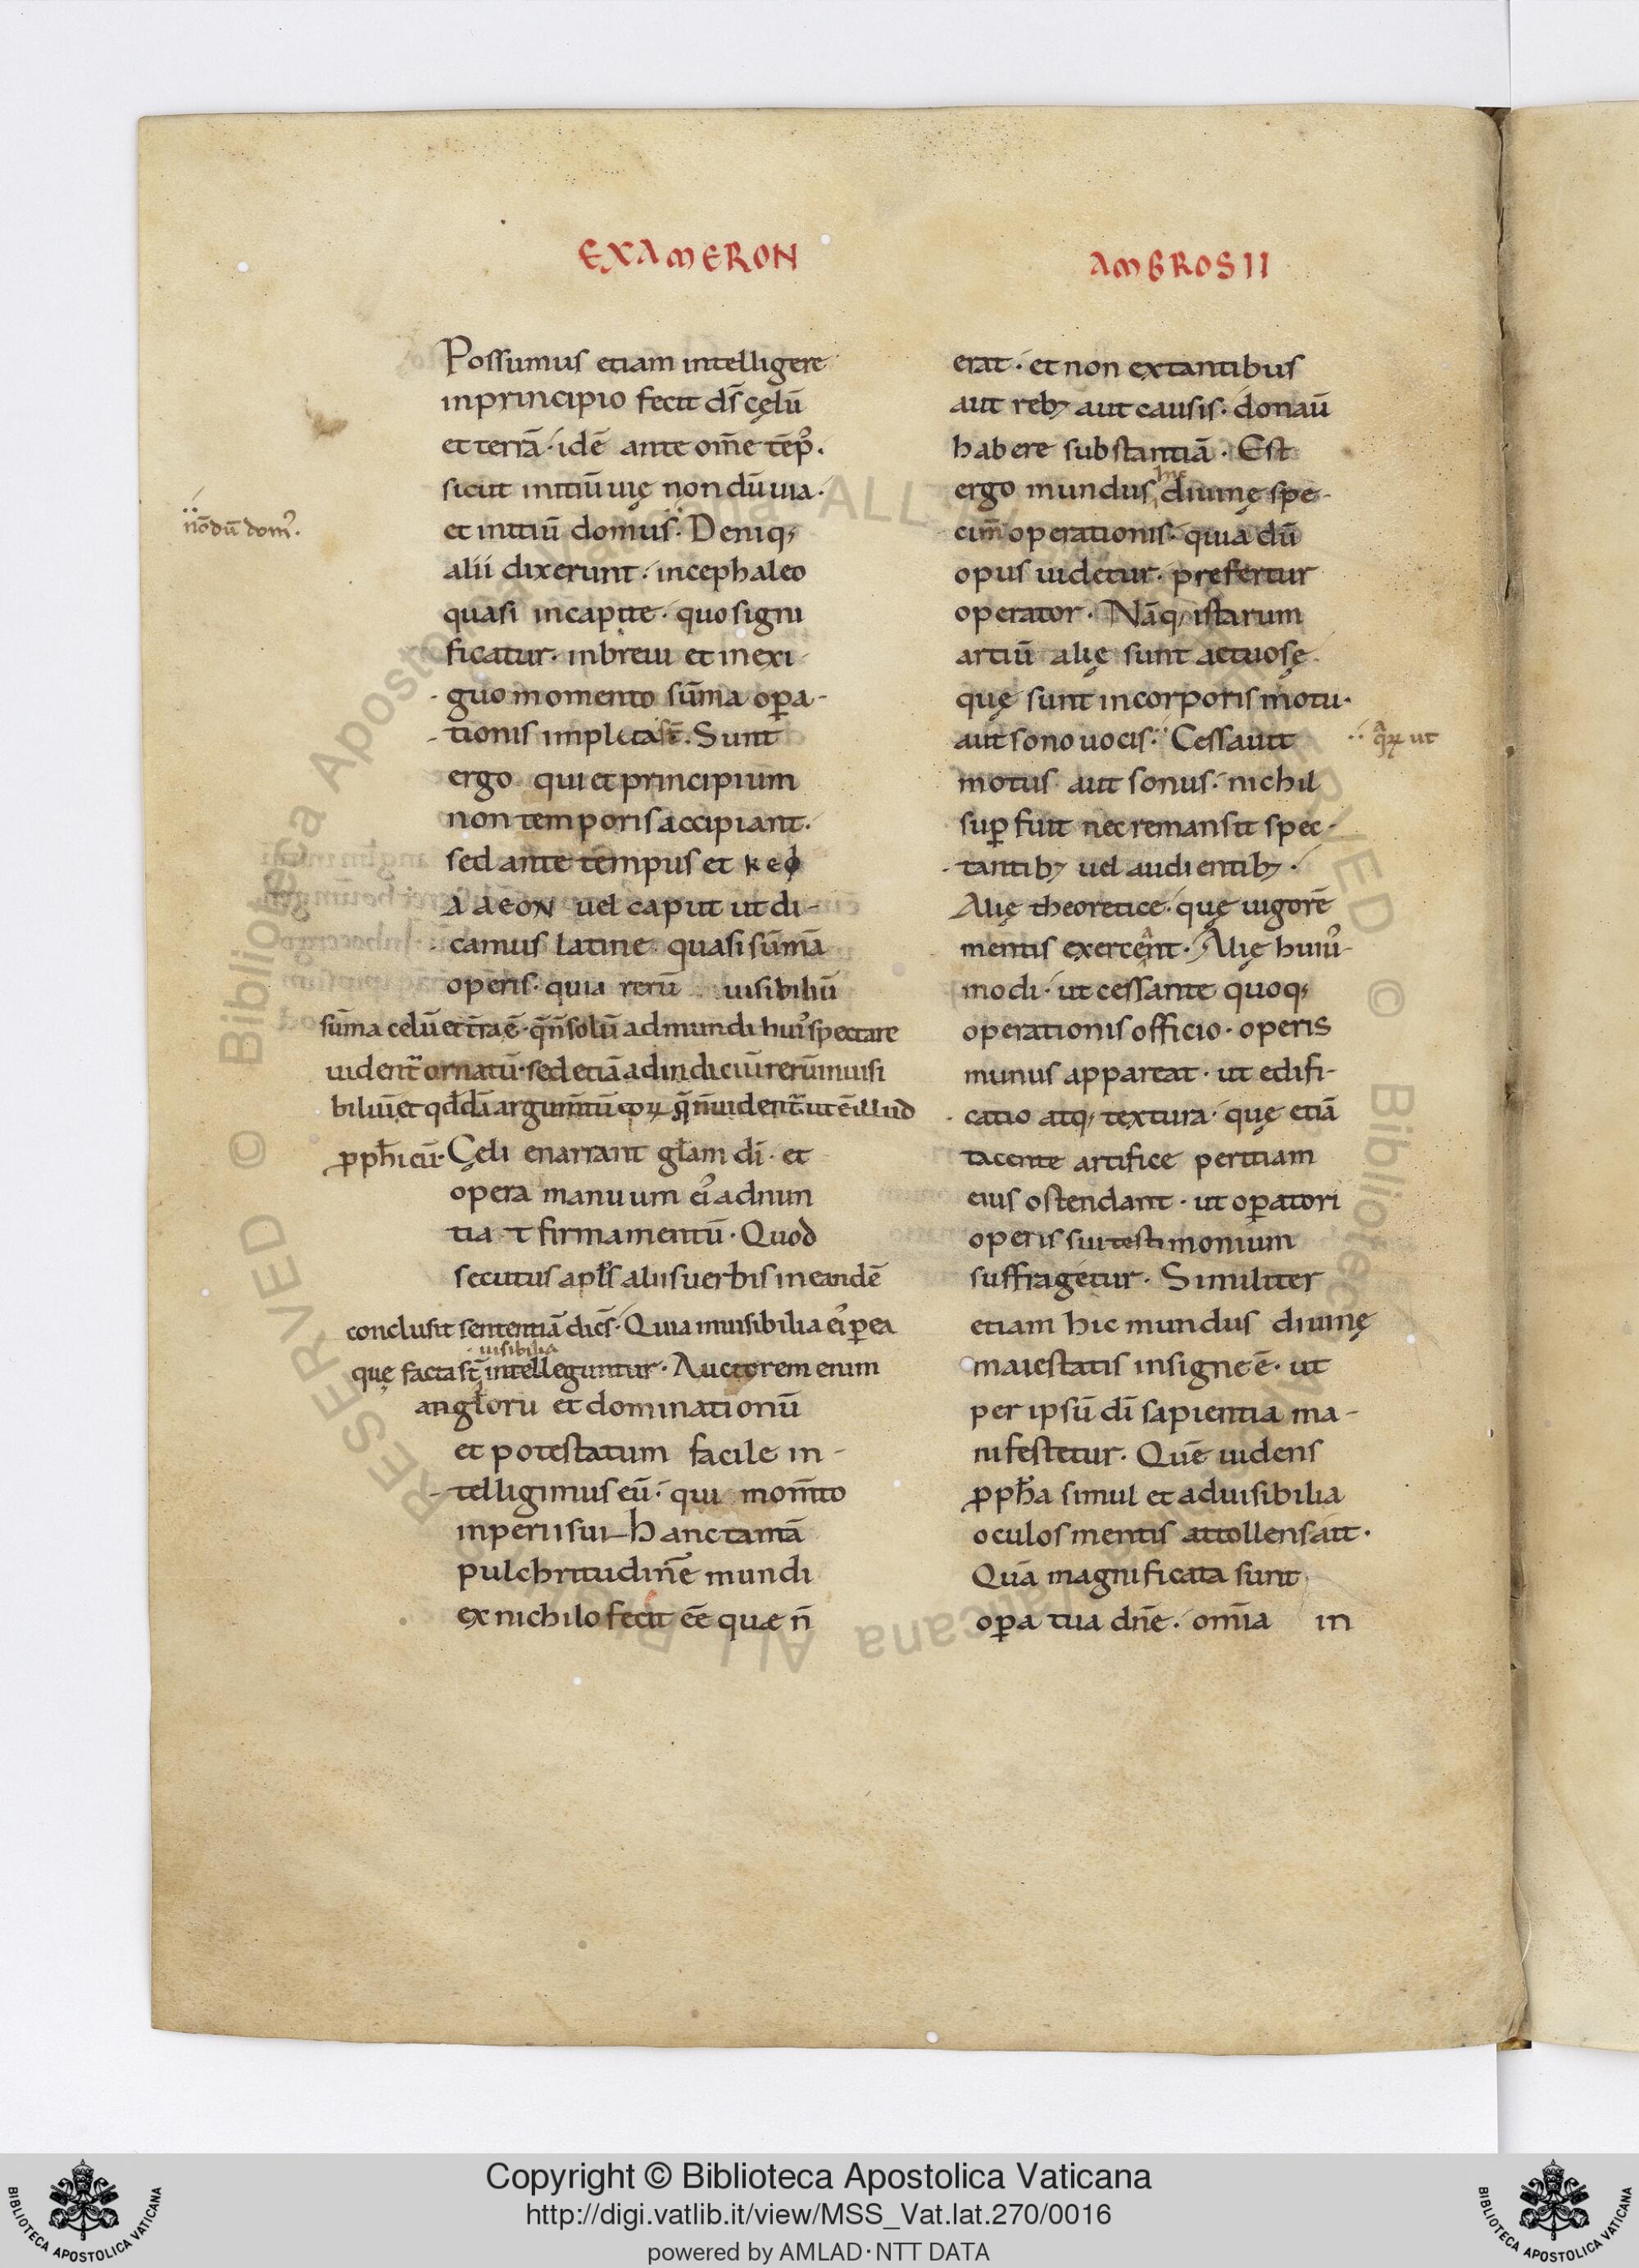 EXAMERON
Possumus etiam intelligere
inprincipio fecit ds̄ cęlū
et terrā · idē ante om̄e tēp᾽.
sicut initiū uię nondū uia ·
et initiū domus · Deniq;
alii dixerunt · incephaleo
quasi incapite · quo signi
ficatur · inbreui et inexi
guo momento sūma oꝑa-
tionis impleta st̄. Sunt
ergo qui et principium
non temporis accipiant.
sed ante tempus et κεφ
ΑΛΕΟΝ uel caput ut di-
camus latine quasi sūmā
operis · quia rerū uisibiliū
sūma celū et t̄ra ē · q̄ n̄ solū ad mundi hui᾽ spectare
uident᷑ ornatū · sed etiā ad indiciū rerū inuisi
biliū et qd̄dā argum̄tū eoꝝ q̄ n̄ uident᷑ ut ē illud
ꝓph̄icū · Cęli enarrant gl̄am dī · et
opera manuum ei᾽ adnun
tiat firmamentū · Quod
secutus apl̄s aliis uerbis in eandē
conclusit sententiā dic̄s · Quia inuisibilia ei᾽ ꝑ ea
uisibilia
quę facta st̄ intelleguntur · Auctorem enim
angl̄oru et dominationū
et potestatum facile in-
telligimus eū · qui mom̄to
inperii sui hanc tantā
pulchritudinē mundi
ex nichilo fecit eē quæ n̄
nōdū dom᾽.
AMBROSII
erat · et non extantibus
aut rebꝫ aut causis · donaū
habere substantiā · Est
ergo mundus diuinę spe-
cim̄ operationis · quia dū
opus uidetur · prefertur
operator · Nāq; istarum
artiū alię sunt actuosę
quę sunt incorporis motu ·
aut sono uocis · Cessauit
motus aut sonus · nichil
suꝑfuit nec remansit spec-
tantibꝫ uel audientibꝫ ·
Alię theoretice · quę uigorē
mentis exerceant · Alię huiu᾽
modi · ut cessante quoq;
operationis officio · operis
munus appareat · ut edifi-
catio atq; textura · quę etiā
tacente artifice peritiam
eius ostendant · ut oꝑatori
operis sui testimonium
suffragetur · Similiter
etiam hic mundus diuinę
maiestatis insigne ē · ut
per ipsū dī sapientia ma-
nifestetur · Quē uidens
ꝓph̄a simul et ad uisibilia
oculos mentis attollens ait ·
Quā magnificata sunt
oꝑa tua dn̄e · om̄ia in
Copyright © Biblioteca Apostolica Vaticana
http://digi.vatlib.it/view/MSS_Vat.lat.270/0016
powered by AMLAD·NTT DATA
BIBLIOTECA APOSTOLICA VATICANA
BIBLIOTECA APOSTOLICA VATICANA